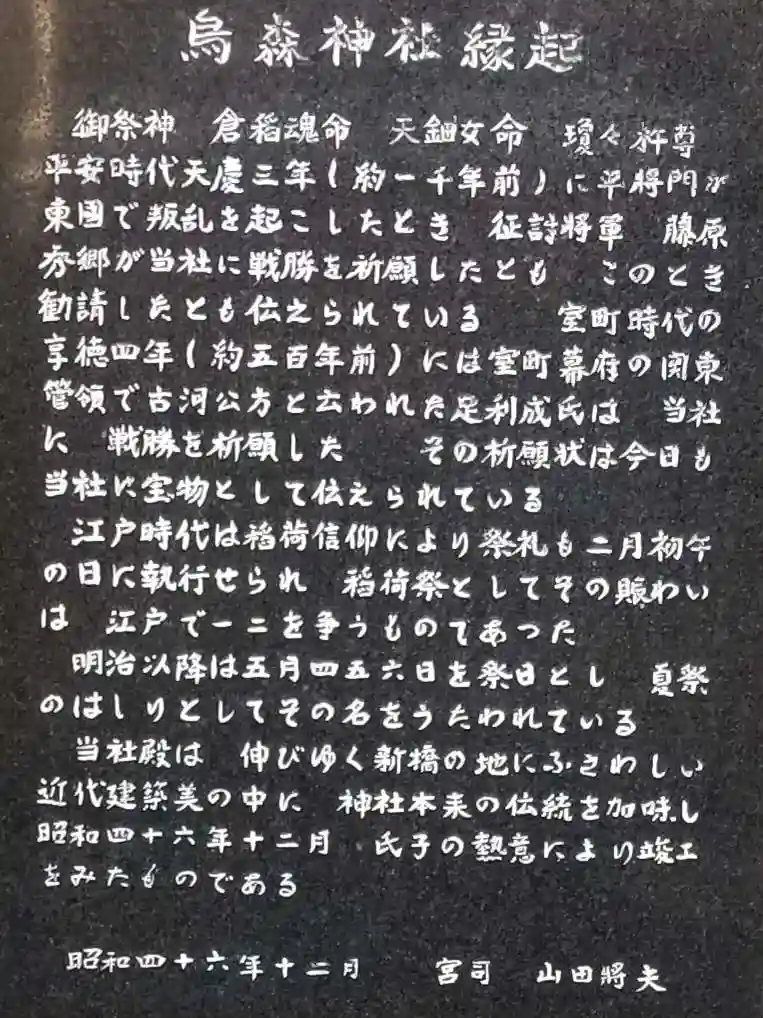 烏森神社縁起
御祭神　倉稲魂命　天鈿女命　瓊々杵尊
平安時代天慶三年(約一千年前)に平將門が
東國で叛乱を起こしたとき　征討將軍　藤原
秀郷が当社に戦勝を祈願したとも　このとき
勧請したとも伝えられている　　室町時代の
享徳四年(約五百年前)には室町幕府の関東
管領で古河公方と云われた足利成氏は　当社
に　戦勝を祈願した　　その祈願状は今日も
当社に宝物として伝えられている
江戸時代は稲荷信仰により祭礼も二月初午
の日に執行せられ　稲荷祭としてその賑わい
は　江戸で一二を争うものであつた
明治以降は五月四五六日を祭日とし　夏祭
のはしりとしてその名をうたわれている
当社殿は　伸びゆく新橋の地にふさわしい
近代建築美の中に　神社本来の伝統を加味し
昭和四十六年十二月　氏子の熱意により竣工
をみたものである
昭和四十六年十二月　　宮司　山田將夫